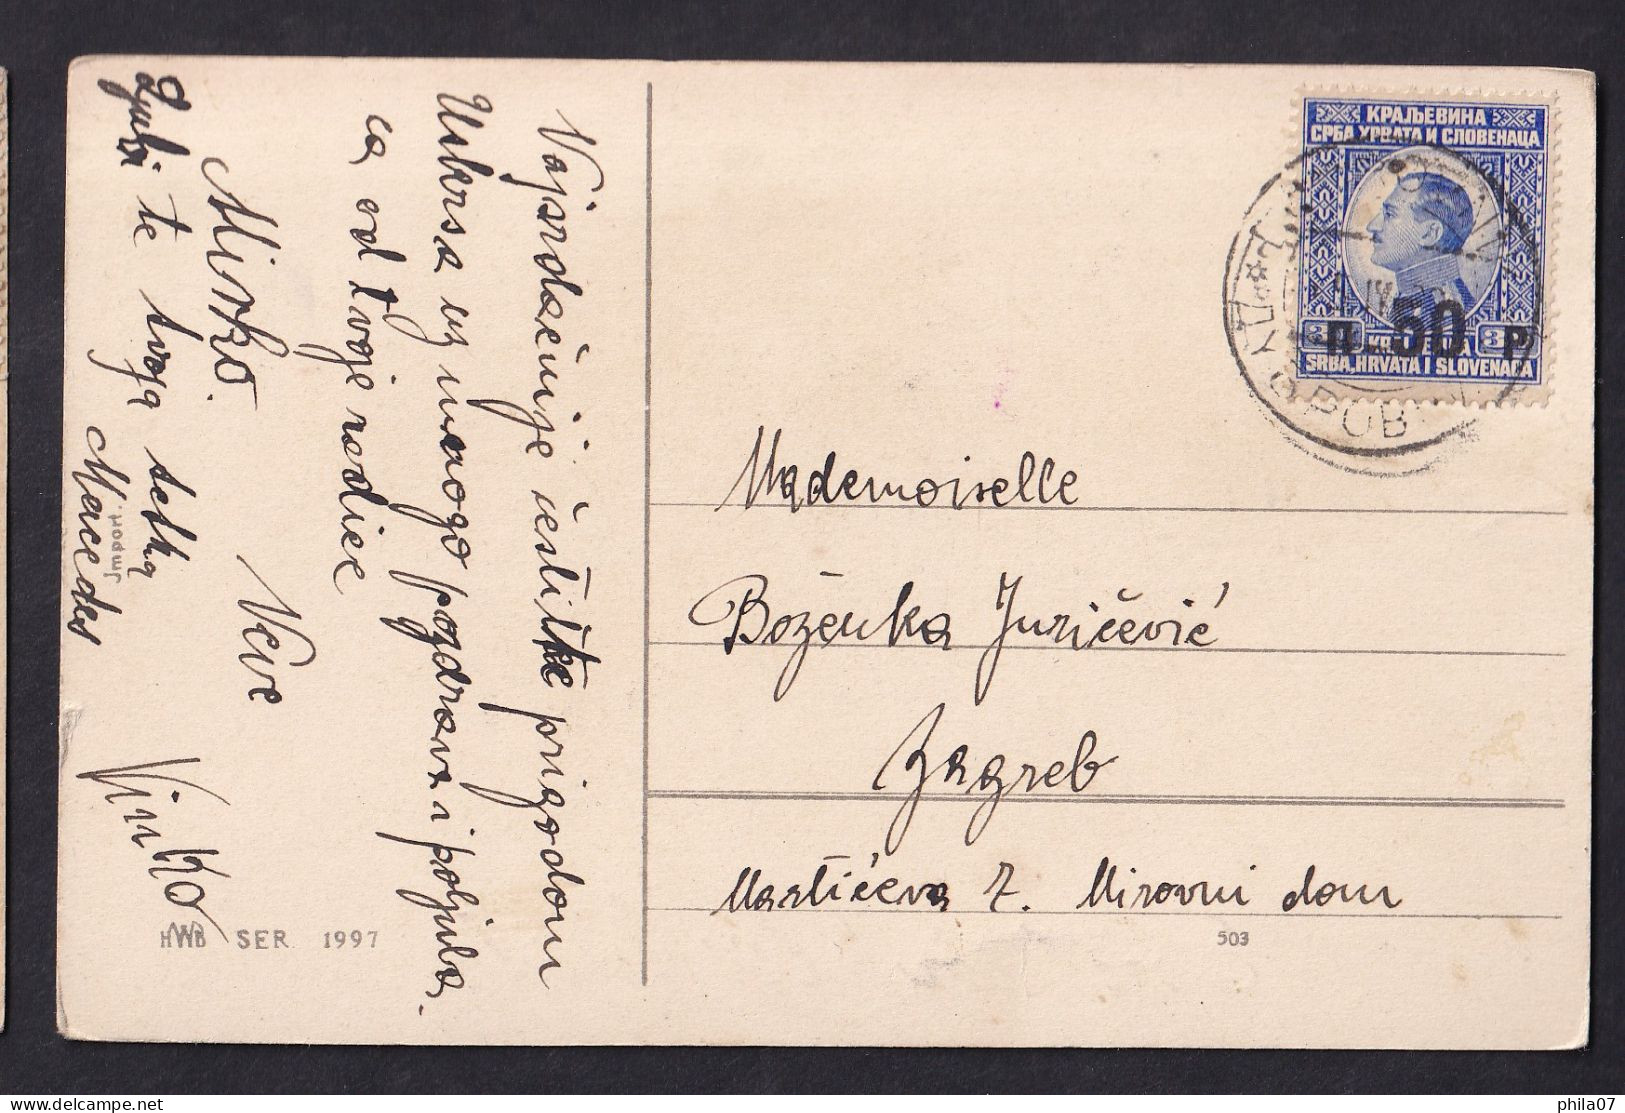 Najsrdačnije čestitke prigodom
Uskrsa uz mnogo pozdrava i poljuba-
ca od tvoje rodice
Neve
Mirko.
Ljubi te tvoja tetka
Mercedes
Vinko
Import.
HWB SER. 1997
КРАЉЕВИНА
СРБА, ХРВАТА И СЛОВЕНАЦА
3 П. 50 Р 3
KRALJEVINA
SRBA, HRVATA I SLOVENACA
Mademoiselle
Boženka Juričević
Zagreb
Martićeva 7. Mirovni dom
503
phila07